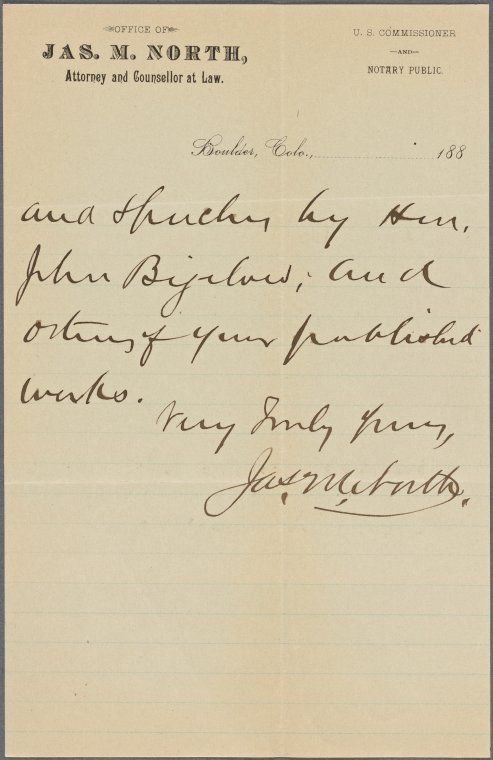 OFFICE OF
JAS. M. NORTH,
Attorney and Counsellor at Law.
U. S. COMMISSIONER
—AND—
NOTARY PUBLIC.
Boulder, Colo., 188
and Speeches by Hon.
John Bigelow; and
others of your published
works.
Very Truly yours,
Jas. M. North.